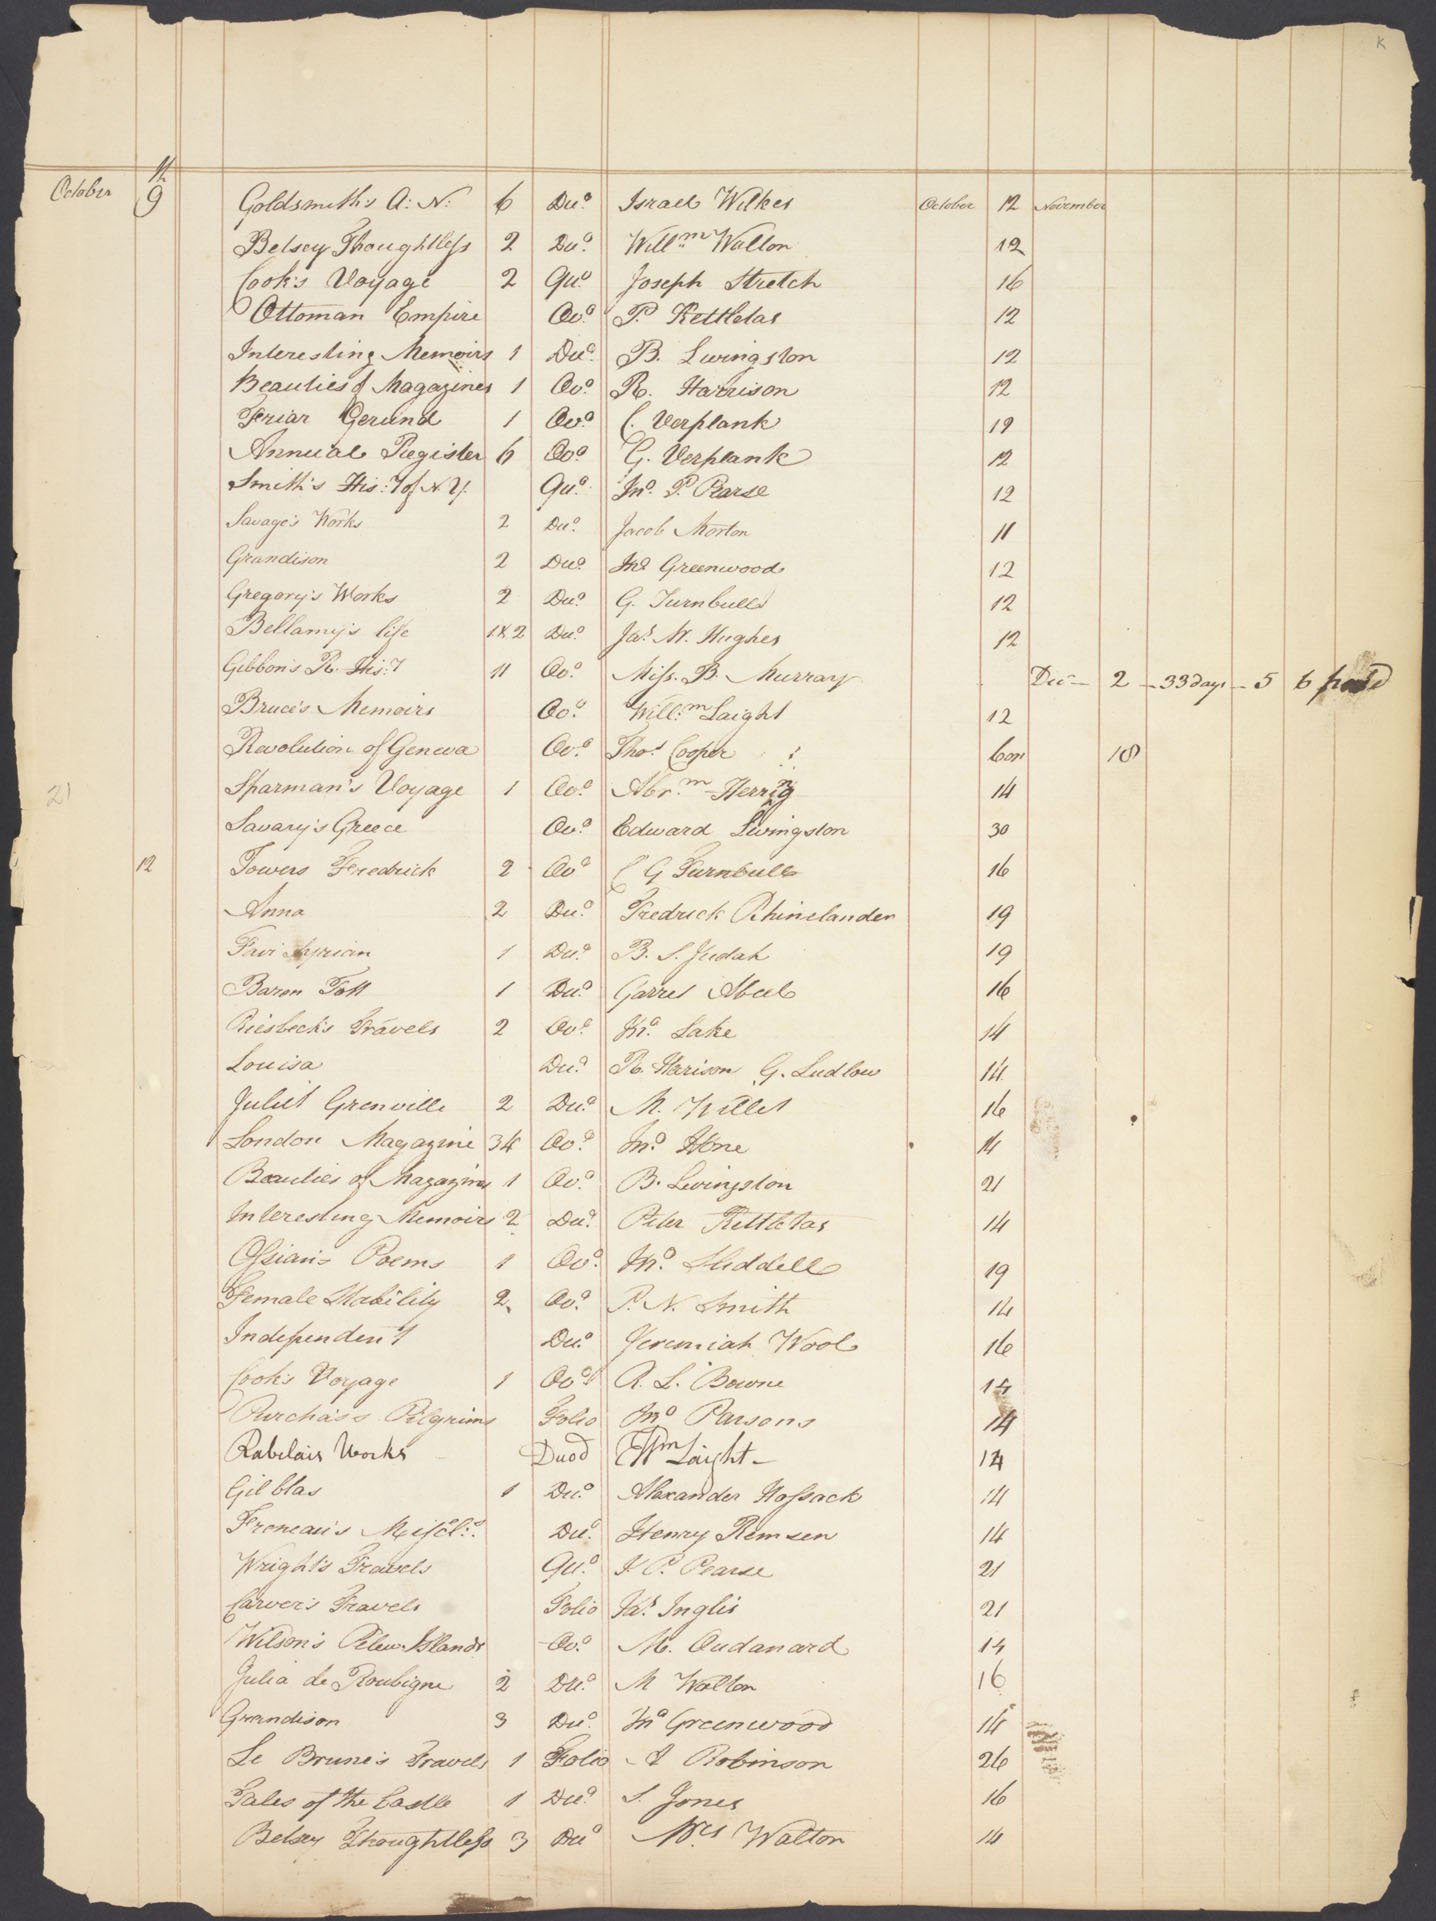 K
October 9 Goldsmith's A: N: 6 Duo. Israel Wilkes October 12 November
Betsey Thoughtless 2 Duo. Willm. Walton 12
Cook's Voyage 2 Quo. Joseph Stretch 16
Ottoman Empire Ovo. P. Kettletas 12
Interesting Memoirs 1 Duo. B. Livingston 12
Beauties of Magazines 1 Ovo. R. Harrison 12
Friar Gerund 1 Ovo. C. Verplank 12
Annual Register 6 Ovo. G. Verplank 12
Smith's His:y of N. Y. Quo. Jno. P. Pearse 12
Savage's Works 2 Duo. Jacob Morton 11
Grandison 2 Duo. Jno Greenwood 12
Gregory's Works 2 Duo. G. Turnbull 12
Bellamy's life 1 & 2 Duo. Jas. M. Hughes 12
Gibbon's R. His:y 11 Ovo. Miss. B. Murray Dec 2 33 days 5 6 paid
Bruce's Memoirs Ovo. Willm. Laight 12
Revolution of Geneva Ovo. Thos. Cooper Con 18
Sparman's Voyage 1 Ovo. Abrm. Herring 14
21
Savary's Greece Ovo. Edward Livingston 30
12 Towers Fredrick 2 Ovo C G Turnbull 16
Anna 2 Duo. Fredrick Rhinelander 19
Fair Syrian 1 Duo. B. S. Judah 19
Baron Tott 1 Duo. Garret Abeel 16
Riesbeck's Travels 2 Ovo. Jno. Lake 14
Louisa Duo. R. Harison G. Ludlow 14
Juliet Grenville 2 Duo. M. Willet 16
London Magazine 34 Ovo. Jno. Hone 14
Beauties of Magazines 1 Ovo. B. Livingston 21
Interesting Memoirs 2 Duo. Peter Kettletas 14
Ossian's Poems 1 Ovo. Jno. Sliddell 19
Female Stability 2 Ovo. P. N. Smith 14
Independent Duo. Jeremiah Wool 16
Cook's Voyage 1 Ovo. R. L. Bowne 14
Purchass Pilgrims Folio Jno Parsons 14
Rabelais Works Duod Wm Laight 14
Gil blas 1 Duo. Alexander Hossack 14
Freneau's Miscl:s Duo. Henry Remsen 14
Wright's Travels Quo. J. P. Pearse 21
Carver's Travels Folio Jas. Inglis 21
Wilson's Pelew Islands Ovo. M. Oudanard 14
Julia de Roubigne 2 Duo. M Walton 16
Grandison 3 Duo. Jno Greenwood 14
Le Brune's Travels 1 Folio A Robinson 26
Tales of the Castle 1 Duo. S. Jones 16
Betsey Thoughtless 3 Duo Mrs Walton 14